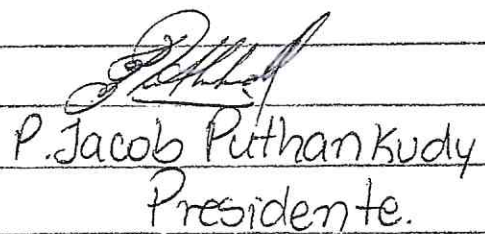 P. Jacob Puthankudy
Presidente.